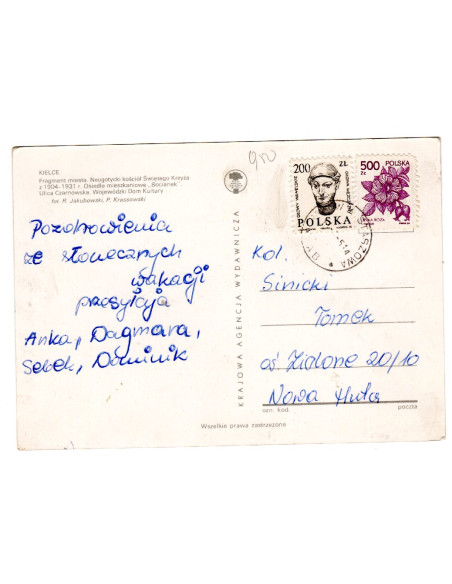 KIELCE
Fragment miasta. Neogotycki kościół Świętego Krzyża
z 1904-1931 r. Osiedle mieszkaniowe „Bocianek”
Ulica Czarnowska. Wojewódzki Dom Kultury
fot. R. Jakubowski, P. Krassowski
Pozdrowienia
ze słonecznych
wakacji
przesyłają
Anka, Dagmara,
Sebek, Dominik
KRAJOWA AGENCJA WYDAWNICZA
900
200 ZŁ
POLSKA
500
ZŁ
POLSKA
Kol.
Sinicki
Tomek
oś Zielone 20/10
Nowa Huta
ozn. kod.
poczta
Wszelkie prawa zastrzeżone